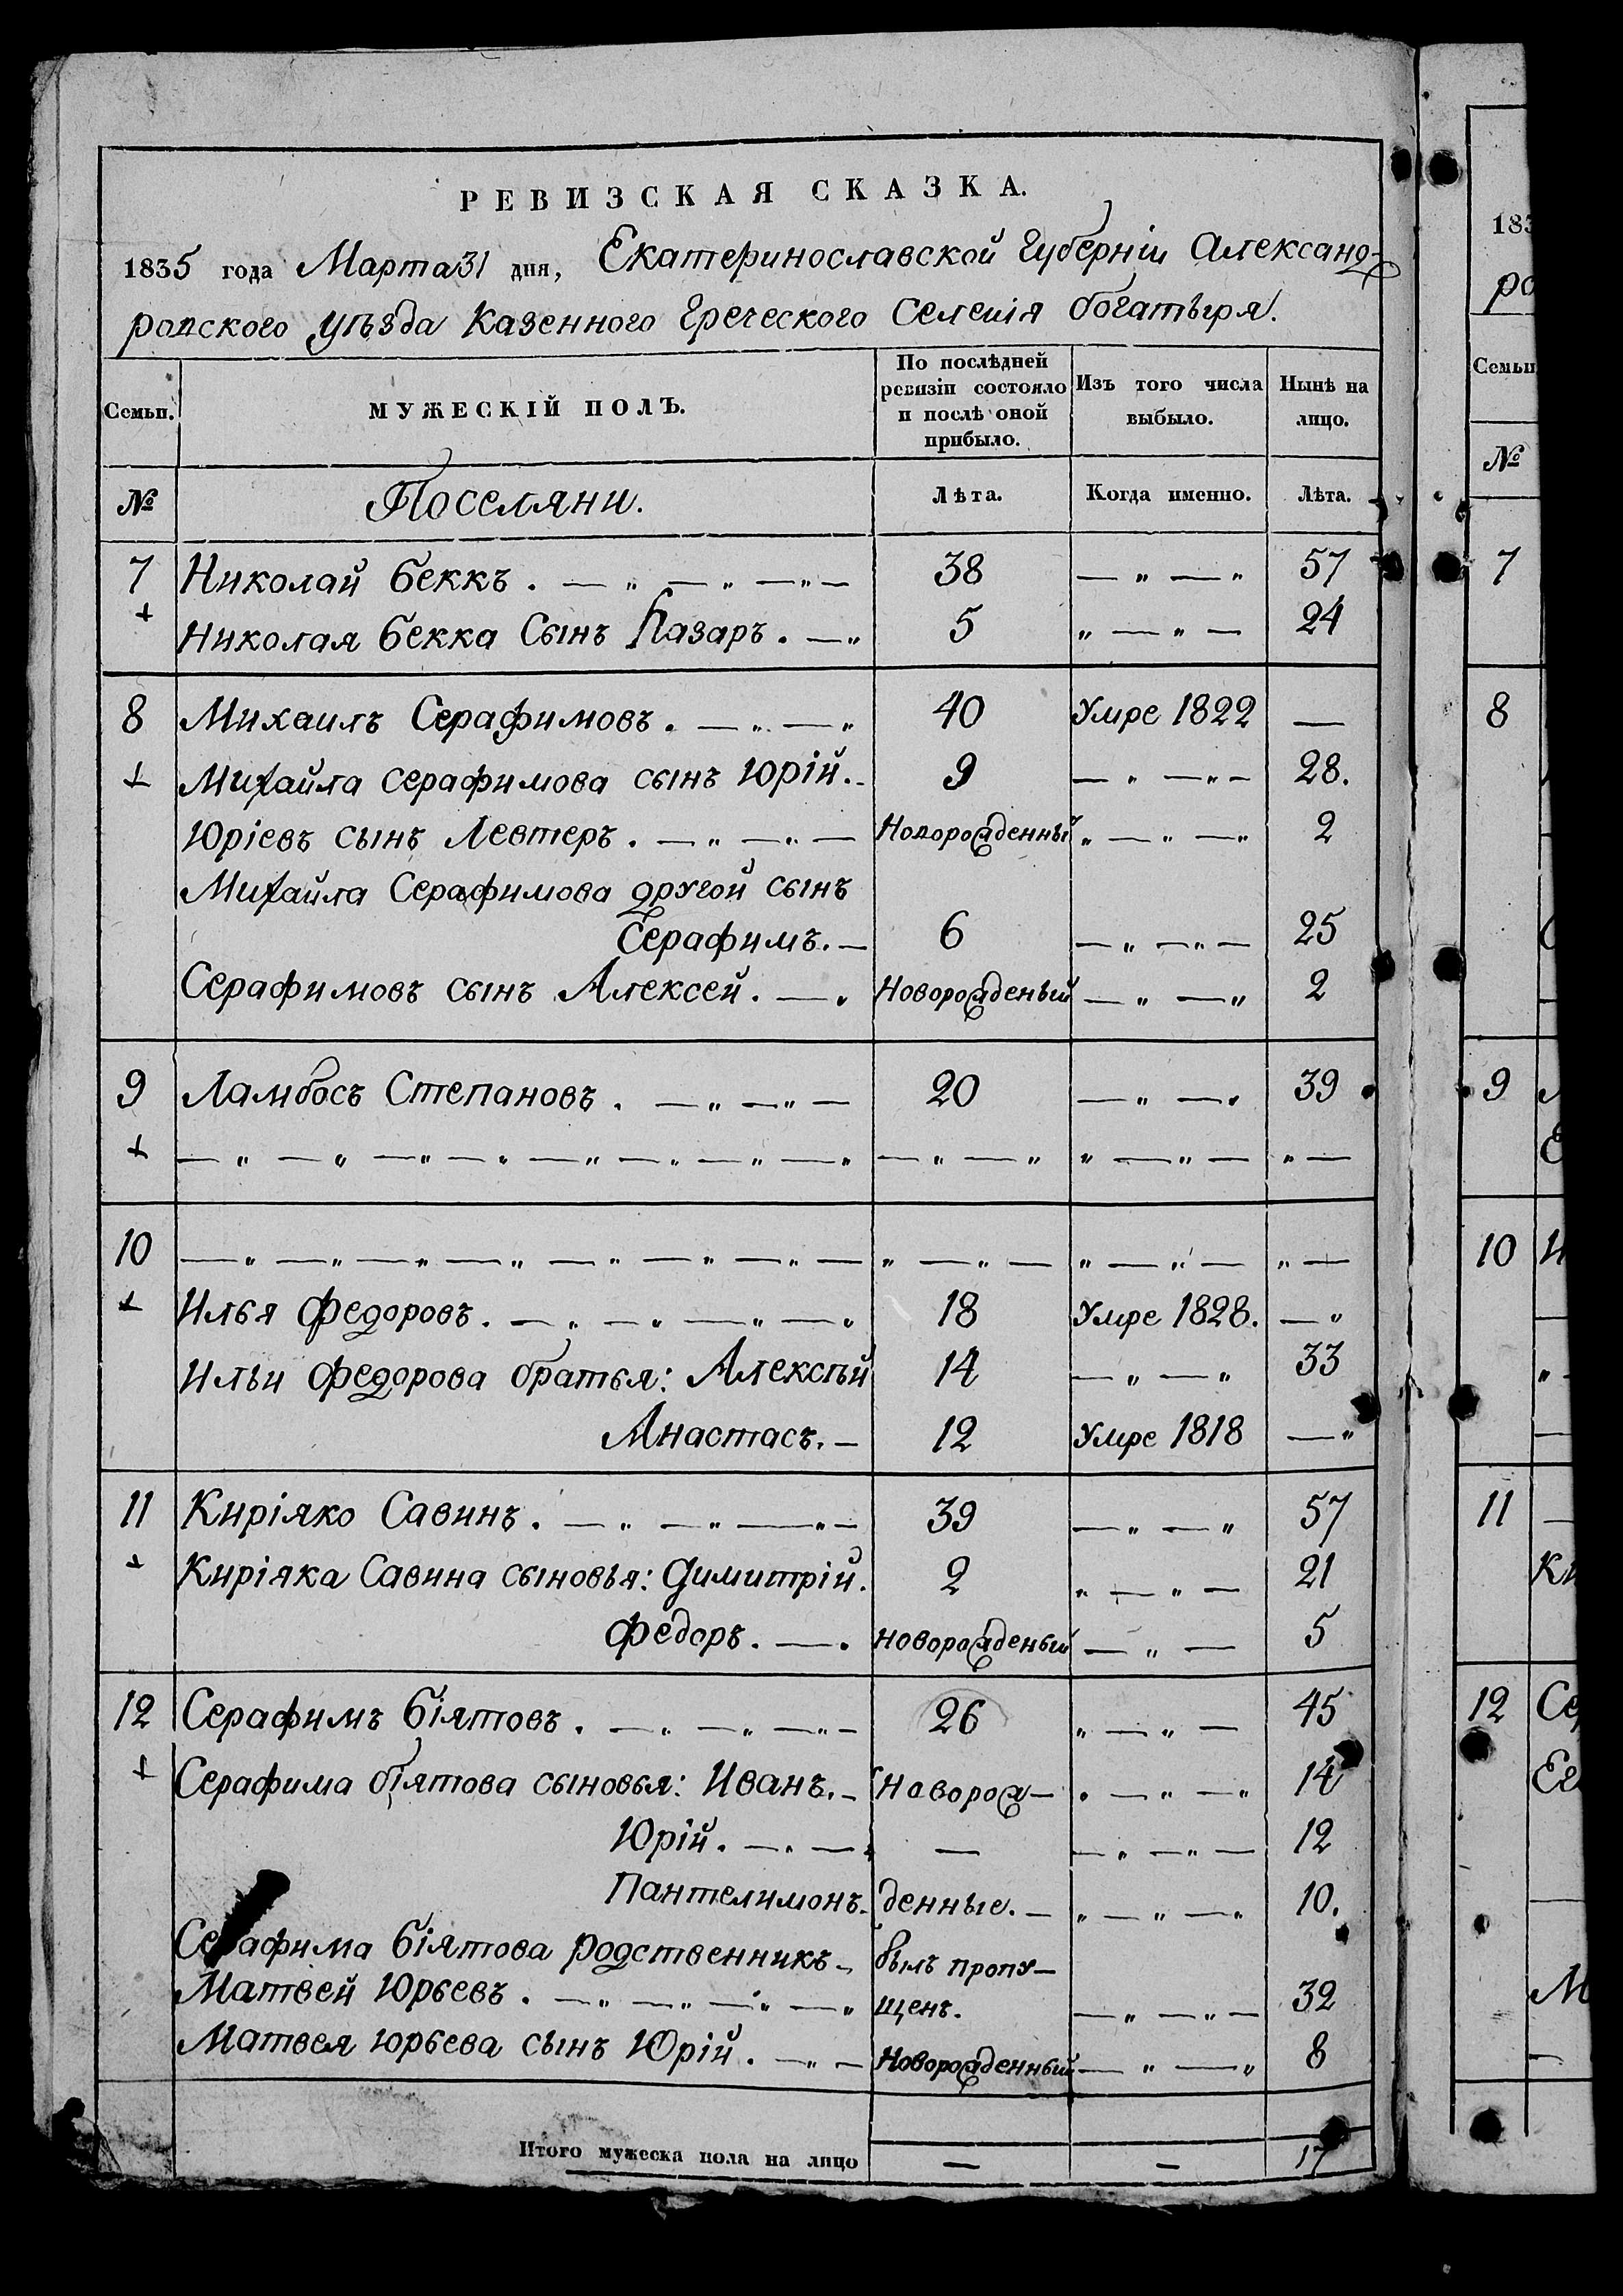 РЕВИЗСКАЯ СКАЗКА.
1835 года Марта 31 дня, Екатеринославской Губерніи Александ-
ровского уѣзда Казенного Греческого Селенія богатыря.
Семьи.
МУЖЕСКІЙ ПОЛЪ.
По послѣдней ревизіи состояло и послѣ оной прибыло.
Изъ того числа выбыло.
Нынѣ на лицо.
№ Поселяни. Лѣта. Когда именно. Лѣта.
7 Николай Беккъ. — „ — „ — „ — 38 — „ — „ 57
+ Николая Бекка Сынъ Лазаръ. — „ 5 „ — „ — 24
8 Михаилъ Серафимовъ. — „ — „ 40 Умре 1822 —
+ Михайла Серафимова сынъ Юрій. - 9 — „ — „ — 28.
Юріевъ сынъ Левтеръ. — „ — „ — Новорожденный „ — „ — „ 2
Михайла Серафимова другой сынъ
Серафимъ. — 6 — „ — „ — 25
Серафимовъ сынъ Алексей. — „ Новорожденый — „ — „ 2
9 Ламбосъ Степановъ. — „ — „ — 20 — „ — „ 39
+ — „ — „ — „ — „ — „ — „ — „ — „ — „ — „ „ — „ — „ —
10 — „ — „ — „ — „ — „ — „ — „ — „ — „ — „ — „ — „ —
+ Илья Федоровъ. — „ — „ — „ — „ 18 Умре 1828. — „
Ильи Федорова братья: Алексѣй 14 — „ — „ 33
Анастасъ. — 12 Умре 1818 — „
11 Киріяко Савинъ. — „ — „ — „ — 39 — „ — „ 57
+ Киріяка Савина сыновья: Димитрій. 2 „ — „ — 21
Федоръ. — . новорожденый — „ — 5
12 Серафимъ Біятовъ. — „ — „ — „ — 26 „ — „ — 45
+ Серафима біятова сыновья: Иванъ. - Новорож— „ — „ — „ 14
Юрій. — „ — „ — — „ — „ — 12
Пантелимонъ. денные. — „ — „ — „ 10.
Серафима Біятова родственникъ - былъ пропу—
Матвей Юрьевъ. — „ — „ — „ — „ щенъ. — „ — „ — 32
Матвея Юрьева сынъ Юрій. — „ — Новорожденный — „ — „ 8
Итого мужеска пола на лицо — — 17
183
ро
Семьи
№
7
8
9
10 И
11
Ки
12 Се
Ег
М